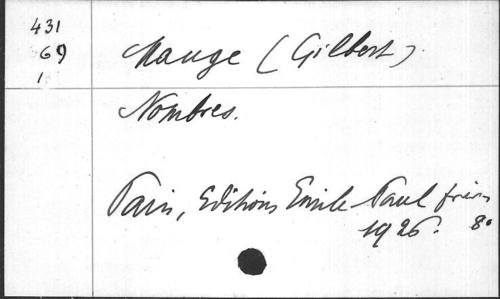 431
69
1
Mauge (Gilbert).
Nombres.
Paris, Editions Emile-Paul frères
1926. 8º